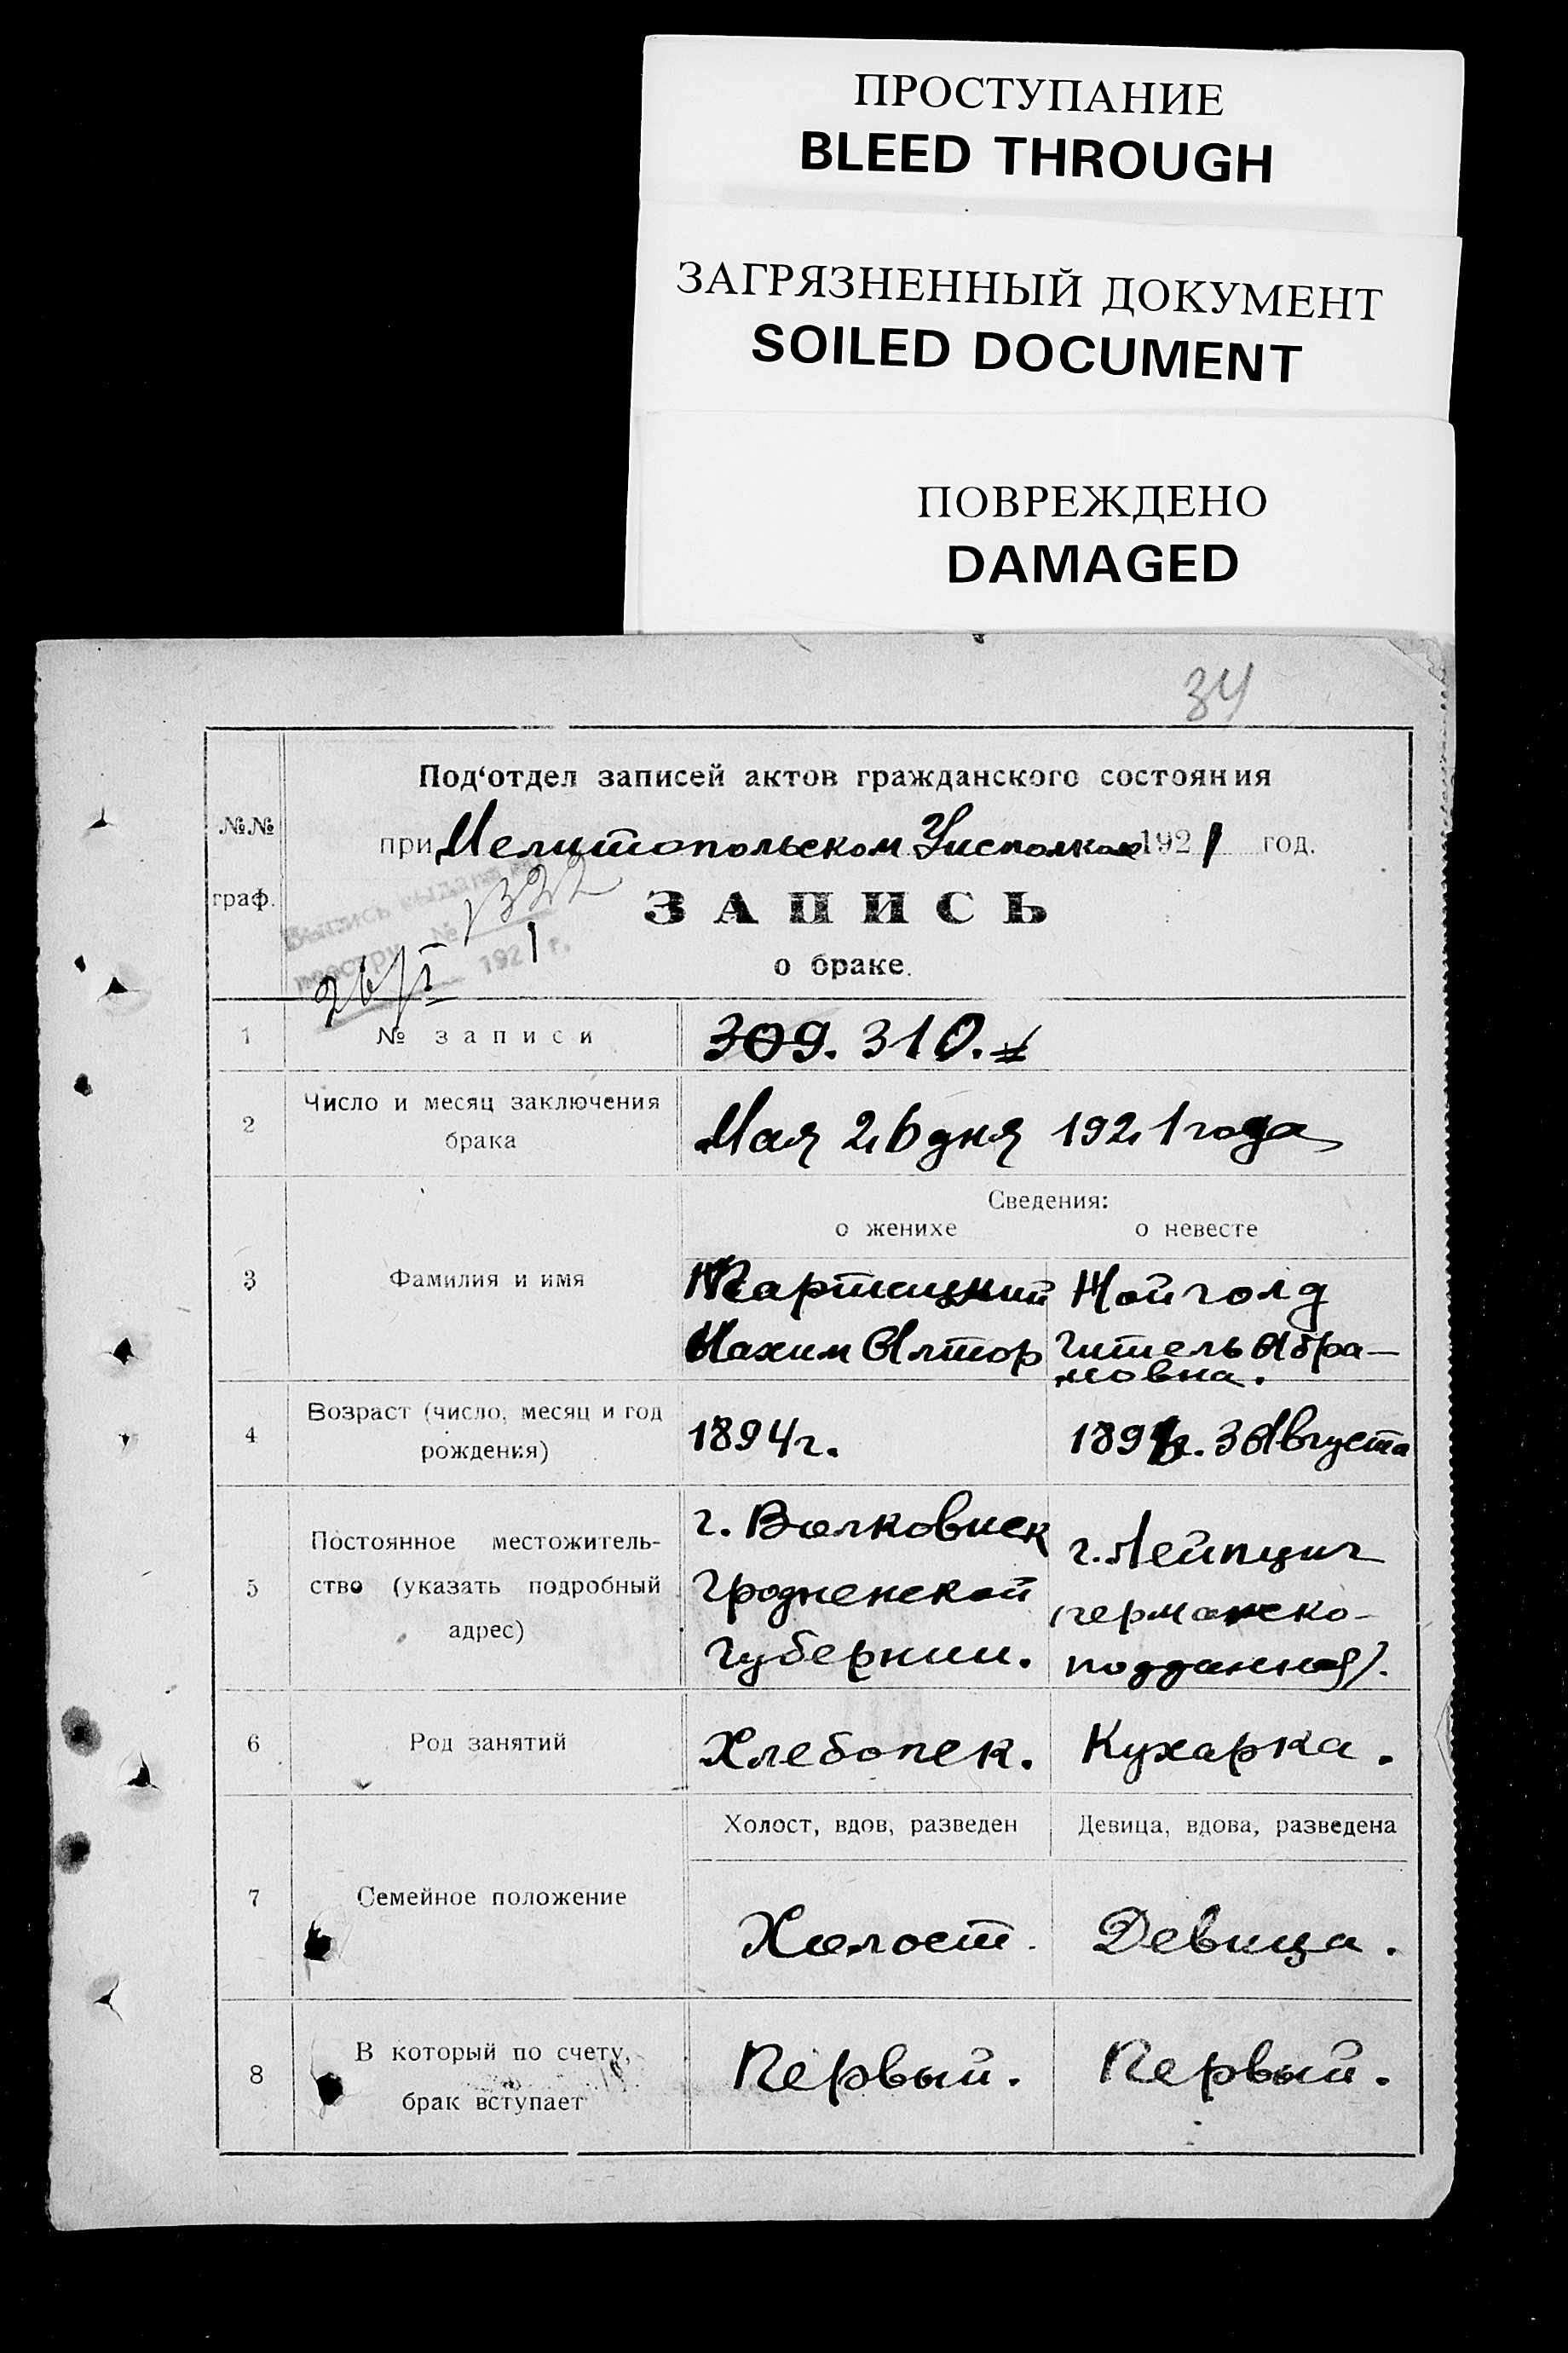 ПРОСТУПАНИЕ
BLEED THROUGH
ЗАГРЯЗНЕННЫЙ ДОКУМЕНТ
SOILED DOCUMENT
ПОВРЕЖДЕНО
DAMAGED
34
№№ граф.
Под'отдел записей актов гражданского состояния
при Мелитопольском Уисполкоме 1921 год.
Выпись выдана
реестру № 1322
26/V 1921 г.
ЗАПИСЬ
о браке.
1 № записи 309. 310.
2 Число и месяц заключения
брака
Мая 26 дня 1921 года
Сведения:
о женихе о невесте
3 Фамилия и имя
Нойголд
Алтор Гитель Абра-
мовна.
4 Возраст (число, месяц и год
рождения)
1894 г. 3 Августа
5 Постоянное местожитель-
ство (указать подробный
адрес)
г. Волковиск
Гродненской
Губернии.
г. Лейпциг
(германско-
подданная).
6 Род занятий Хлебопек. Кухарка.
Холост, вдов, разведен Девица, вдова, разведена
7 Семейное положение Холост. Девица.
8 В который по счету,
брак вступает
Первый. Первый.